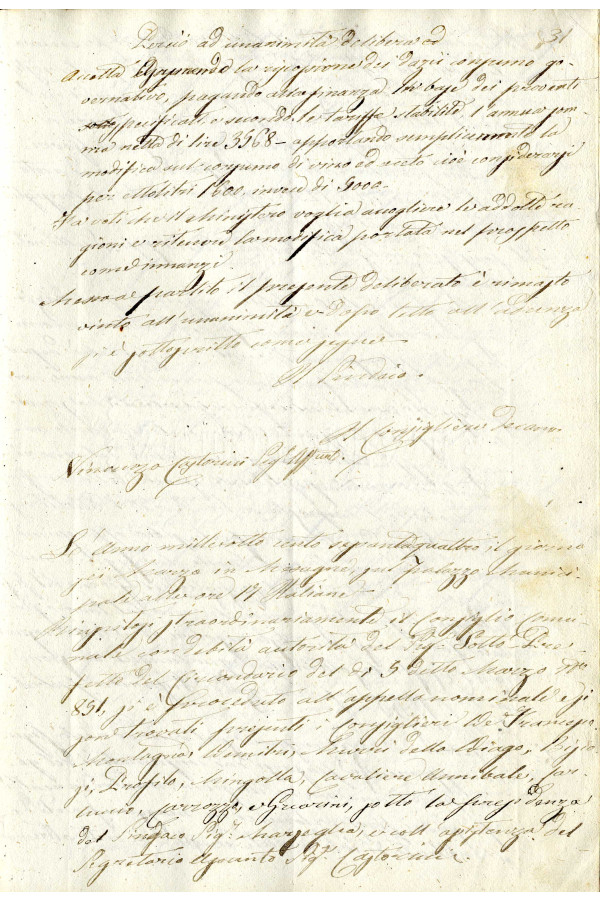 31
Perciò ad unanimità delibera ed
accetta la riscossione dei dazii consumo go-
vernativo, pagando alla finanza in base dei proventi
specificati e secondo le tariffe stabilite l'annua som-
ma netta di lire 3568 - apportando semplicemente la
modifica sul consumo di vino ed aceto cioè considerarsi
per ettolitri 1600 invece di
Fa voti che il Ministero voglia accogliere le addotte ra-
gioni e ritenere la modifica portata nel prospetto
come dinnanzi.
Messo a partito il presente deliberato è rimasto
vinto all'unanimità e dopo letto all'adunanza
si è sottoscritto come segue
Il Sindaco.
Il Consigliere Decano
Vincenzo Castorini Seg.
L'Anno milleotto cento settantaquattro il giorno
sei Marzo in nel palazzo Munici-
pale alle ore 17 Italiane
straordinariamente il Consiglio Comu-
nale con debita autorità del Sig. Sotto-Pre-
fetto del Circondario del dì 5 detto Marzo N.o
891, si è proceduto all'appello nominale e si
son trovati presenti i consiglieri De Franco
Dimitri, della
Profilo, Mingolla, Cavaliere Annibale, Car-
luccio, Carrozzo, e Guarini, sotto la presidenza
del Sindaco Sig.r e coll'assistenza del
Segretario Sig.r Castorini.